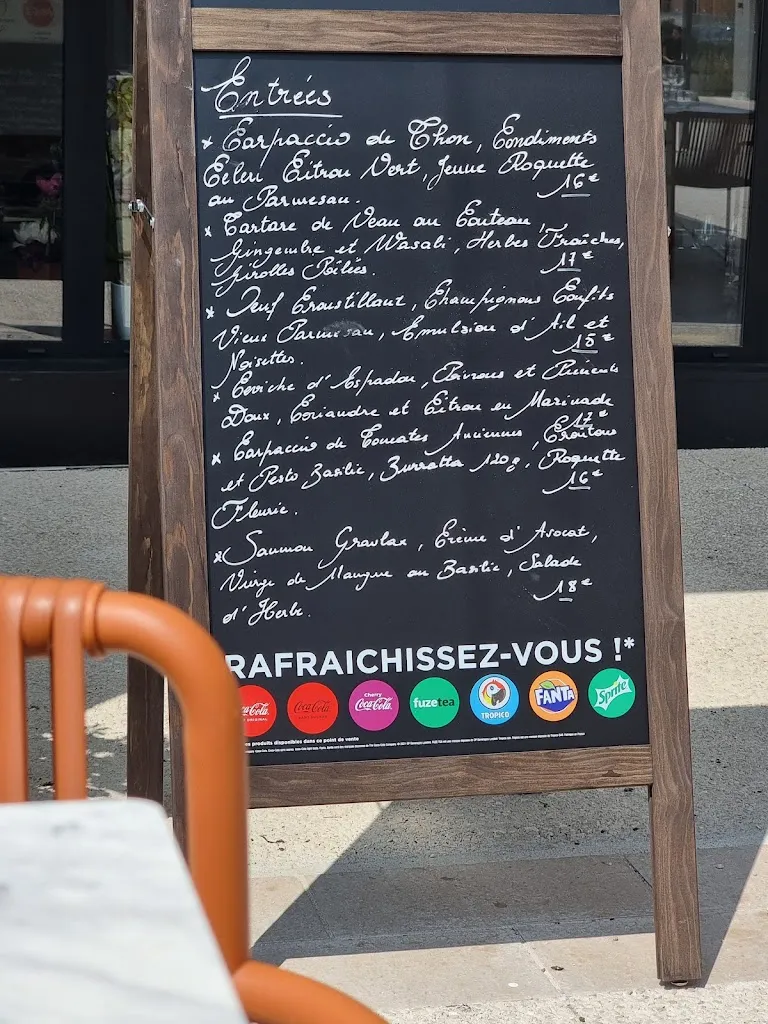 Entrées
* Carpaccio de Thon, Condiments
Celeri Citron Vert, Jeune Roquette
au Parmesan. 16€
* Tartare de Veau au Couteau,
Gingembre et Wasabi, Herbes Fraîches,
Girolles Poêlées. 17€
* Oeuf Croustillant, Champignons Confits
Vieux Parmesan, Emulsion d'Ail et
Noisettes. 15€
* Ceviche d'Espadon, Poivrons et Piments
Doux, Coriandre et Citron en Marinade
17€
* Carpaccio de Tomates Anciennes, Croûtons
et Pesto Basilic, Burratta 120g, Roquette
Fleurie. 16€
* Saumon Gravlax, Crème d'Avocat,
Vierge de Mangue au Basilic, Salade
d'Herbe. 18€
RAFRAICHISSEZ-VOUS !*
Coca-Cola
ORIGINAL
Coca-Cola
Cherry
Coca-Cola
fuzetea
TROPICO
FANTA
Sprite
produits disponibles dans ce point de vente